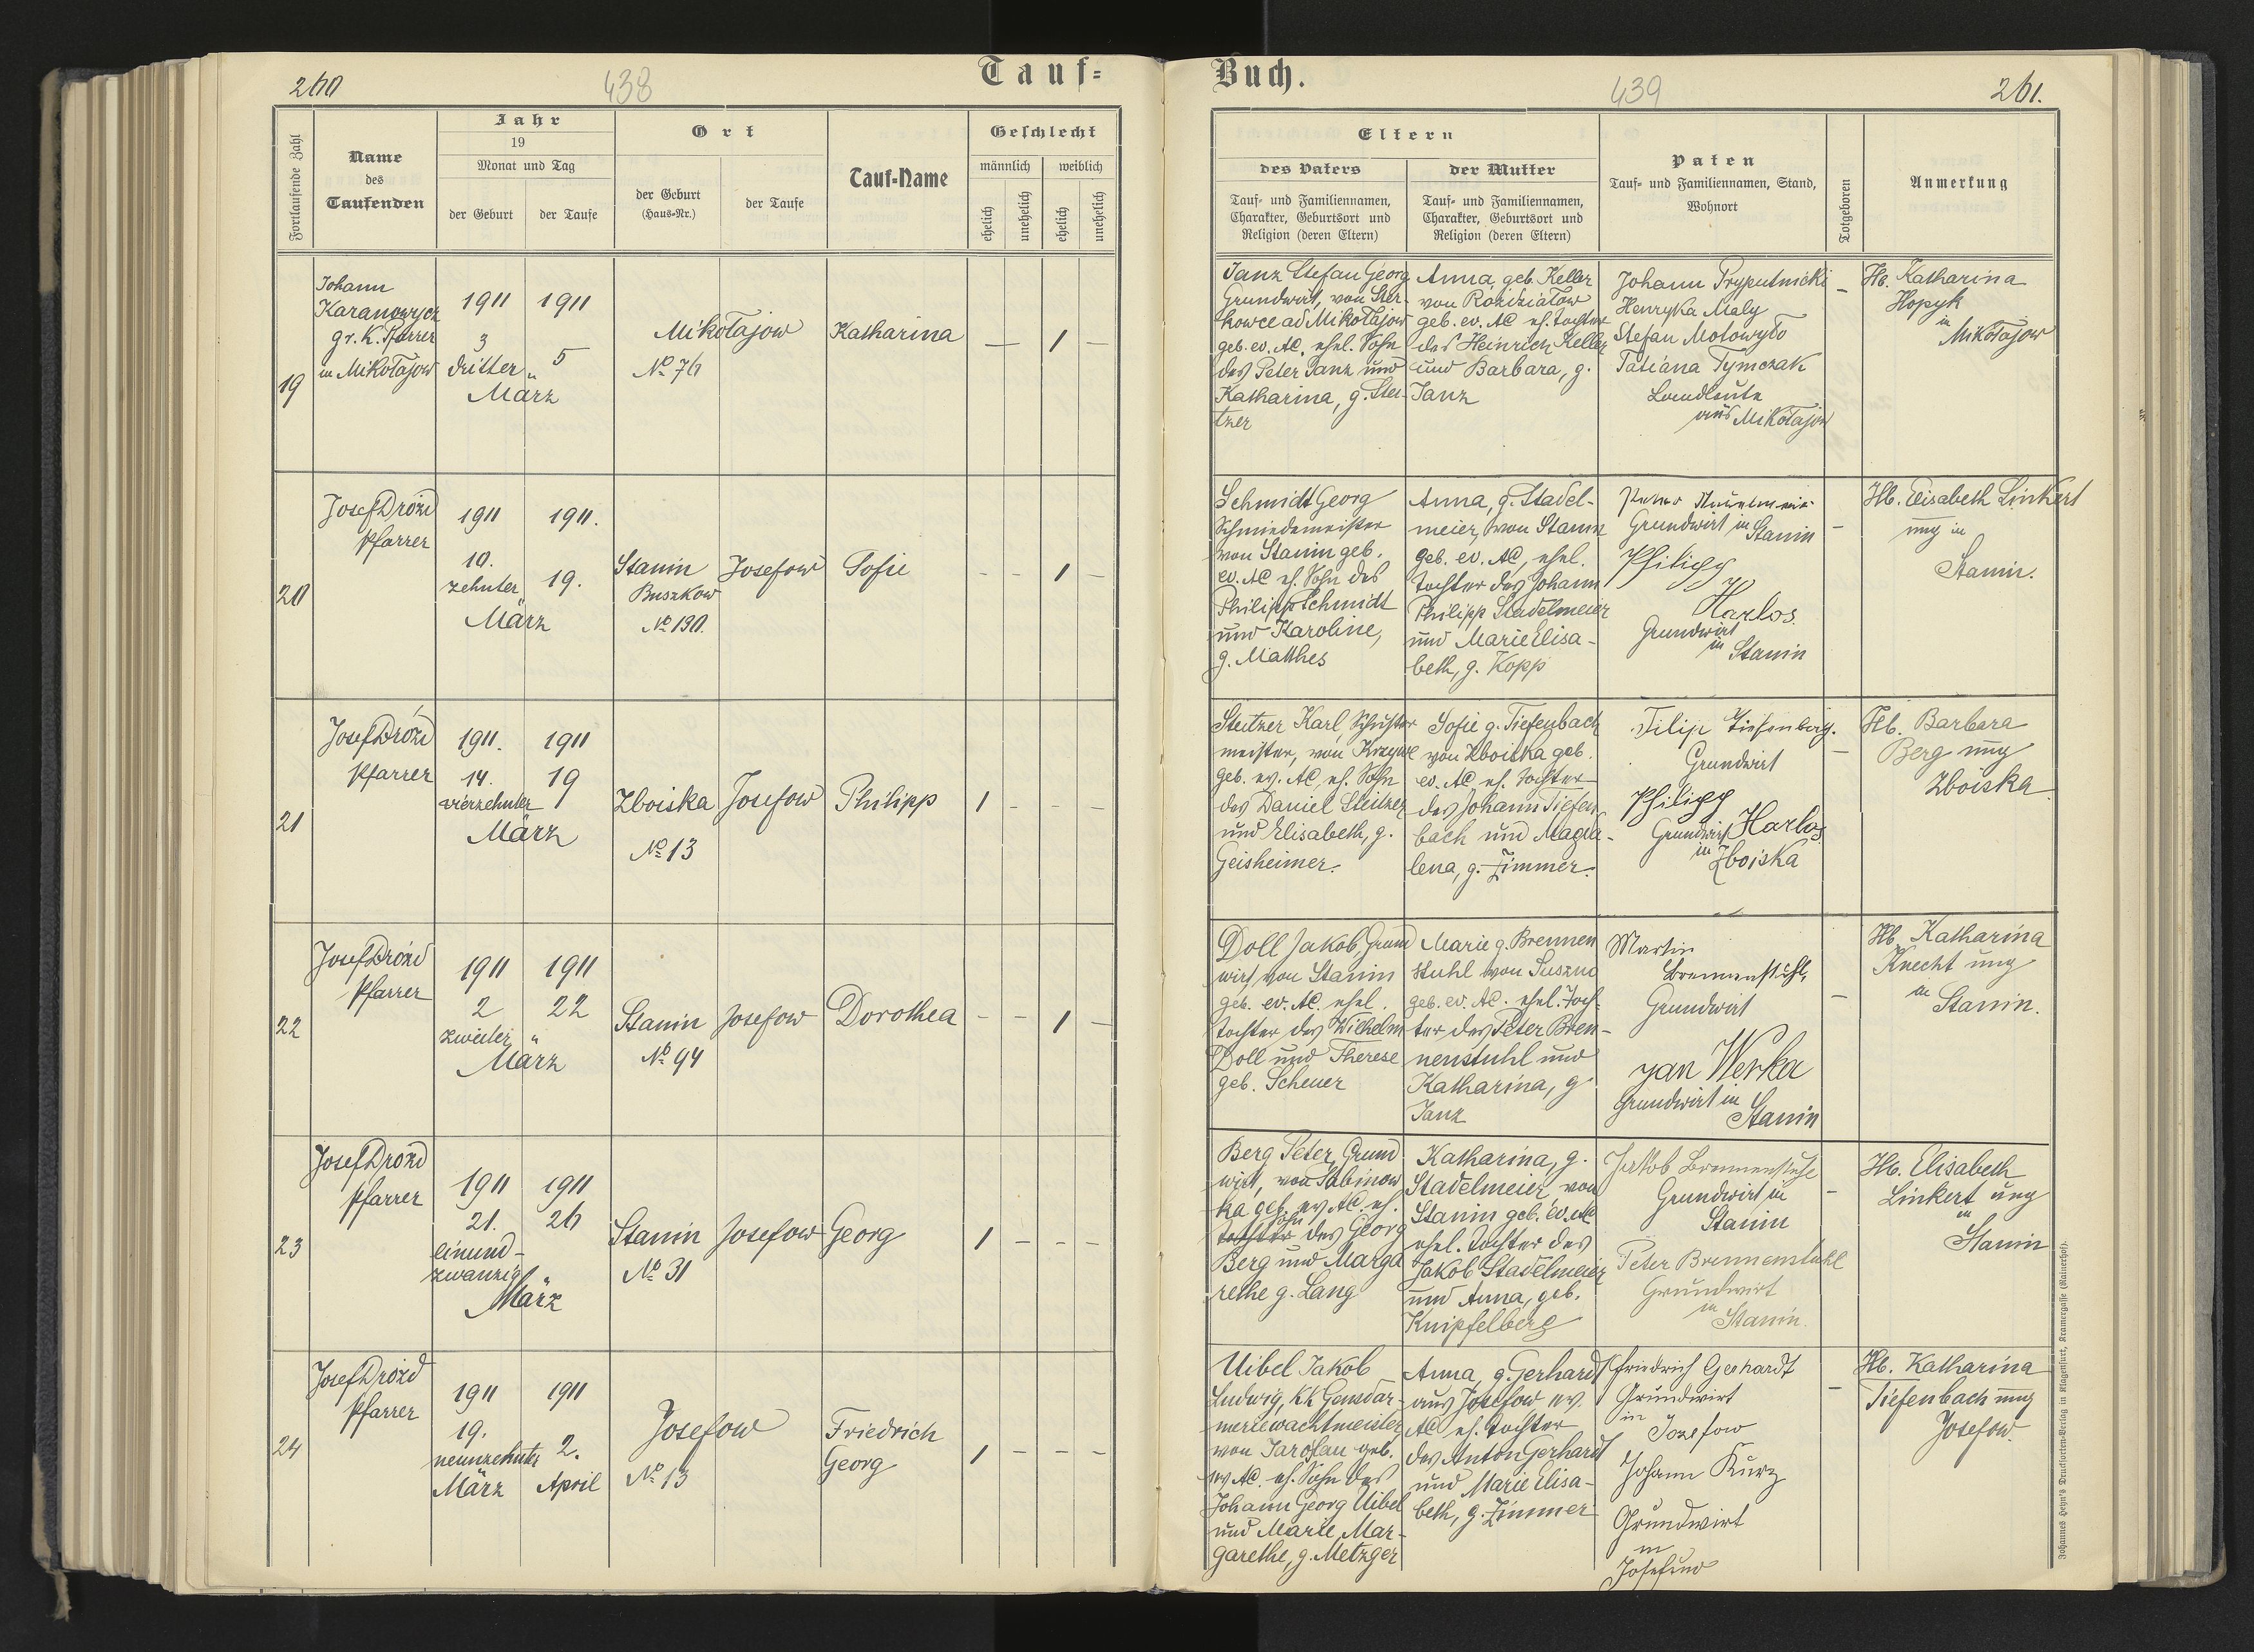 260
438
Tauf=
Fortlaufende Zahl
Name
des
Taufenden
Jahr
19
Monat und Tag
der Geburt
der Taufe
Ort
der Geburt
(Haus=Nr.)
der Taufe
Tauf=Name
Geschlecht
männlich
weiblich
ehelich
unehelich
ehelich
unehelich
19
Johann
Karanowycz
gr. K. Pfarrer
in Mikołajow
1911
3
dritter
März
1911
5
"
Mikołajow
No 76
Katharina
— 1 —
20
Josef Drożd
Pfarrer
1911
10.
zehnter
März
1911.
19.
Stanin
Buszkow
No 190.
Josefow
Sofie
- - 1 -
21
Josef Drożd
Pfarrer
1911.
14.
vierzehnter
März
1911
19
Zboiska
No 13
Josefow
Philipp
1 - - -
22
Josef Drożd
Pfarrer
1911
2
zweiter
März
1911
22
"
Stanin
No 94
Josefow
Dorothea
- - 1 -
23
Josef Drożd
Pfarrer
1911
21.
einund-
zwanzig
März
1911
26
"
Stanin
No 31
Josefow
Georg
1 - - -
24
Josef Drożd
Pfarrer
1911
19.
neunzehnter
März
1911
2.
April
Josefow
No 13
Friedrich
Georg
1 - - -
Buch.
439
261.
Eltern
des Vaters
Tauf= und Familiennamen,
Charakter, Geburtsort und
Religion (deren Eltern)
der Mutter
Tauf= und Familiennamen,
Charakter, Geburtsort und
Religion (deren Eltern)
Paten
Tauf= und Familiennamen, Stand,
Wohnort
Totgeboren
Anmerkung
Janz Stefan Georg
Grundwirt, von Ster-
kowce ad Mikołajow
geb. ev. AC, ehel. Sohn
des Peter Janz und
Katharina, g. Stei-
tzer
Anna, geb. Keller
von Rożdziałow
geb. ev. AC eh. Tochter
des Heinrich Keller
und Barbara, g.
Janz
Johann Pryputnicki
Henryka Maly
Stefan Mołowyło
Tatiana Tymczak
Landleute
aus Mikołajow
-
Hb. Katharina
Hopyk
in
Mikołajow
Schmidt Georg
Schmiedemeister
von Stanin geb.
ev. AC eh. Sohn des
Philipp Schmidt
und Karoline,
g. Matthes
Anna, g. Stadel-
meier, von Stanin
geb. ev. AC, ehel.
Tochter des Johann
Philipp Stadelmeier
und Marie Elisa-
beth, g. Kopp
Grundwirt in Stanin
Philipp
Harlos.
Grundwirt
in Stanin
-
Hb. Elisabeth Linkert
ung in
Stanin.
Steitzer Karl, Schuster
meister, von Krzywe
geb. ev. AC, eh. Sohn
des Daniel Steitzer
und Elisabeth, g.
Geisheimer.
Sofie g. Tiefenbach
von Zboiska geb.
ev. AC eh. Tochter
des Johann Tiefen
bach und Magda-
lena, g. Zimmer.
Filip
Grundwirt
Philipp
Harlos
Grundwirt
in Zboiska
-
Hb. Barbara
Berg ung
Zboiska
Doll Jakob, Grund
wirt von Stanin
geb. ev. AC. ehel.
Tochter des Wilhelm
Doll und Therese
geb. Scheuer
Marie g. Brennen
stuhl von Suszno
geb. ev. AC. ehel. Toch-
ter des Peter Bren-
nenstuhl und
Katharina, g
Janz
Martin
Brennenstuhl,
Grundwirt
Jan Werka
Grundwirt in
Stanin
-
Hb. Katharina
Knecht ung
in
Stanin.
Berg Peter, Grund
wirt, von Sabinow
ka geb. ev. AC. eh.
Sohn
Tochter des Georg
Berg und Marga
rethe g. Lang
Katharina, g.
Stadelmeier, von
Stanin geb. ev. AC
ehel. Tochter des
Jakob Stadelmeier
und Anna, geb.
Knipfelberg
Jakob Brennenstuhl
Grundwirt in
Stanin
Peter Brennenstuhl
Grundwirt
in
Stanin.
-
Hb. Elisabeth
Linkert ung
in
Stanin
Uibel Jakob
Ludwig, kk Gendar-
meriewachtmeister,
von Jaroslau geb.
ev. AC. eh. Sohn des
Johann Georg Uibel
und Marie Mar-
garethe, g. Metzger
Anna, g. Gerhardt
aus Josefow ev.
AC eh. Tochter
des Anton Gerhardt
und Marie Elisa-
beth, g. Zimmer
Friedrich Gerhardt
Grundwirt
in
Josefow
Johann Kurz
Grundwirt
in
Josefow
-
Hb. Katharina
Tiefenbach ung
Josefow.
Johannes Heyn's Drucksorten=Verlag in Klagenfurt, Kramergasse (Rainerhof).